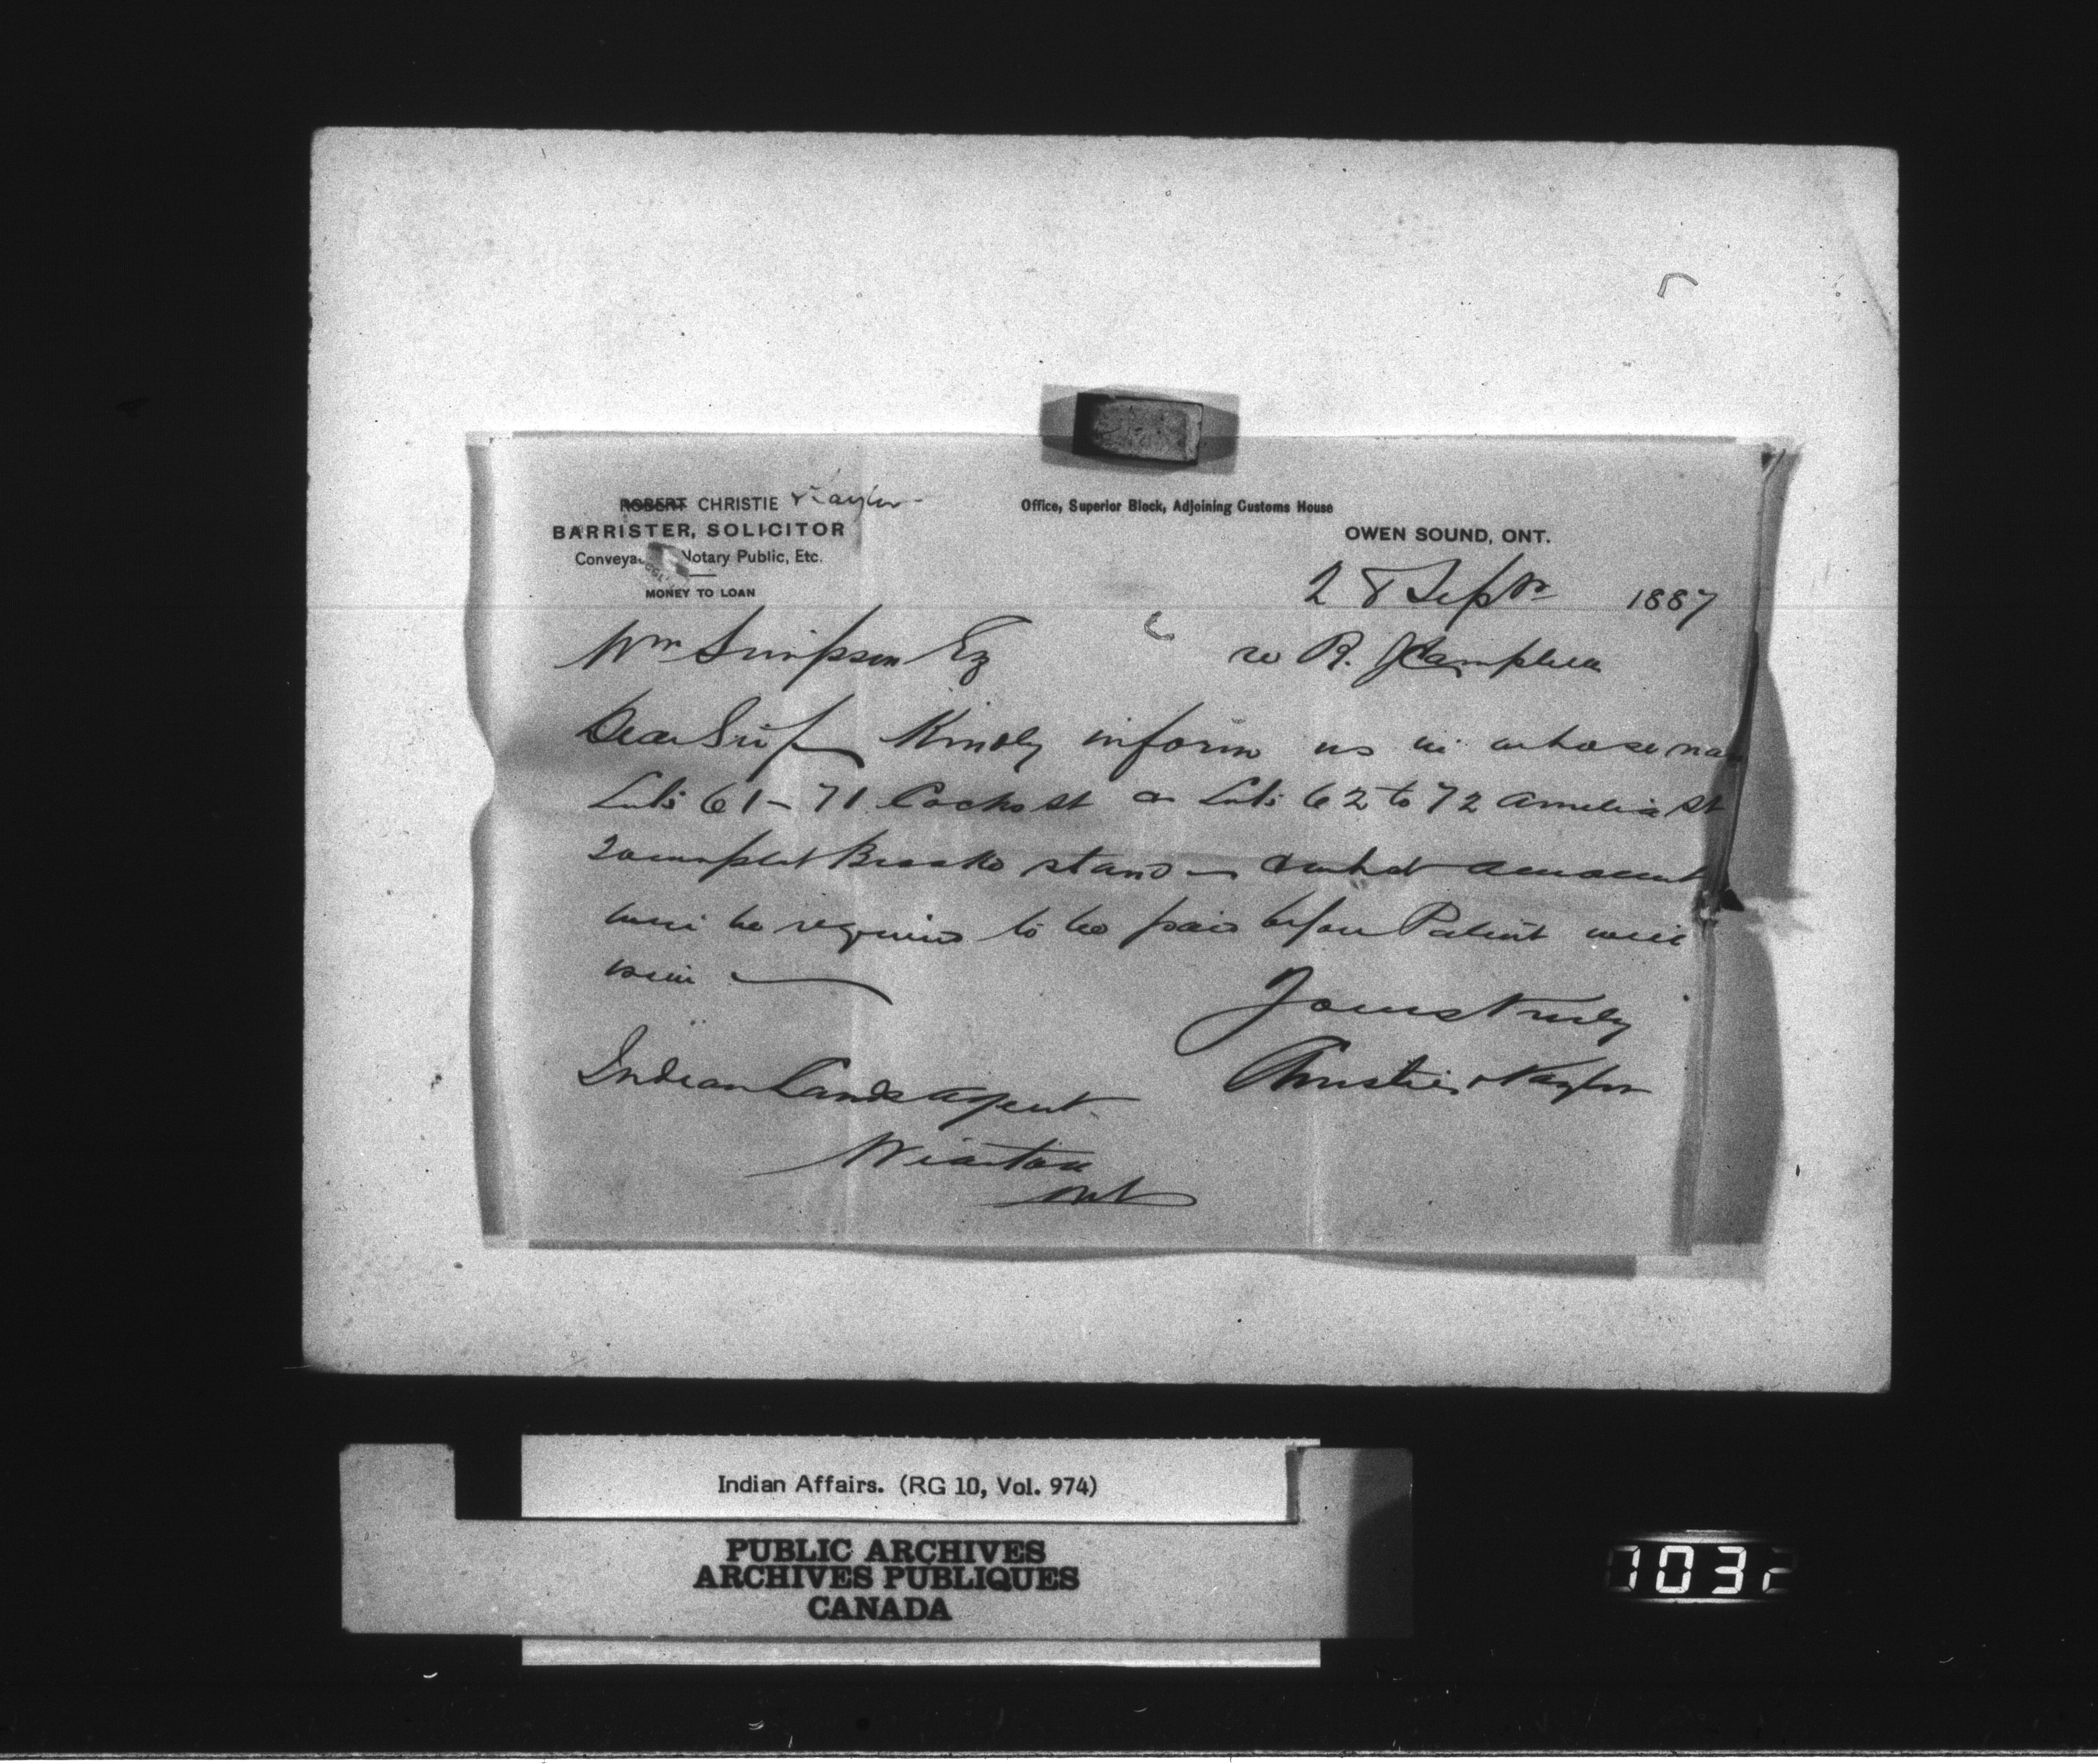 ROBERT CHRISTIE & Naylor
Office, Superior Block, Adjoining Customs House
BARRISTER, SOLICITOR
OWEN SOUND, ONT.
Conveya Notary Public, Etc.
MONEY TO LOAN
28 Septr 1887
Wm Simpson Esq
re R. J. Campbell
Dear Sir Kindly inform us in whose na
Lots 61-71 St & Lots 62 to 72 Amelia St
Brooke stand & what amount
will be required to be paid before Patent will
issue
Yours truly
Christie & Naylor
Indian Lands Agent
Wiarton
Ont
Indian Affairs. (RG 10, Vol. 974)
PUBLIC ARCHIVES
ARCHIVES PUBLIQUES
CANADA
1032